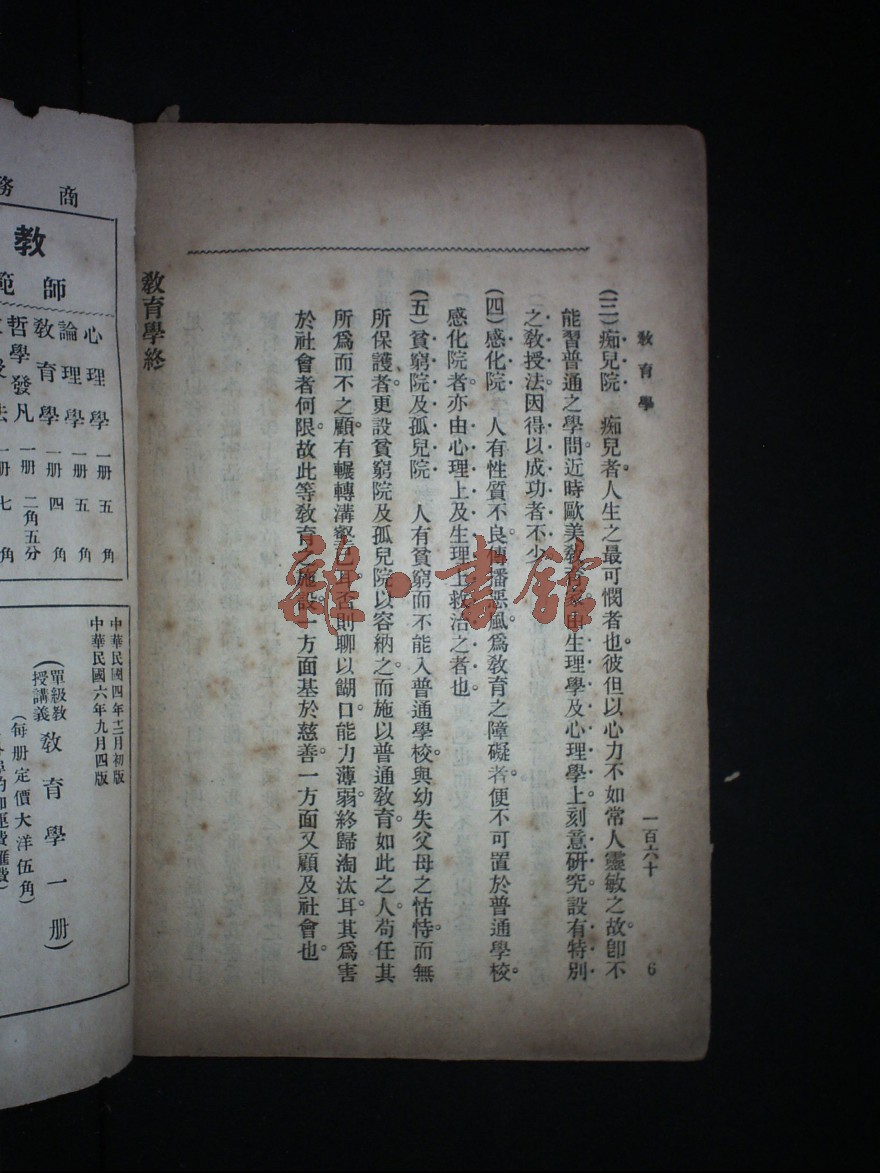 教育學
一百六十
6
(三)痴兒院 痴兒者人生之最可憫者也。彼但以心力不如常人靈敏之故。卽不
能習普通之學問。近時歐美敎育家由生理學及心理學上。刻意研究。設有特別
之敎授法。因得以成功者不少。
(四)感化院 人有性質不良。傳播惡風。爲敎育之障礙者。便不可置於普通學校。
感化院者。亦由心理上及生理上救治之者也。
(五)貧窮院及孤兒院 人有貧窮而不能入普通學校。與幼失父母之怙恃。而無
所保護者。更設貧窮院及孤兒院以容納之。而施以普通敎育。如此之人。苟任其
所爲而不之顧。有輾轉溝壑已耳。否則聊以餬口。能力薄弱。終歸淘汰耳。其爲害
於社會者何限。故此等敎育之施設。一方面基於慈善。一方面又顧及社會也。
敎育學終
雜·書館
商務
教
師範
心理學 一册 五角
論理學 一册 五角
敎育學 一册 四角
哲學發凡 一册 二角五分
一册 七角
中華民國四年十二月初版
中華民國六年九月四版
(單級敎授講義敎育學一册)
(每册定價大洋伍角)